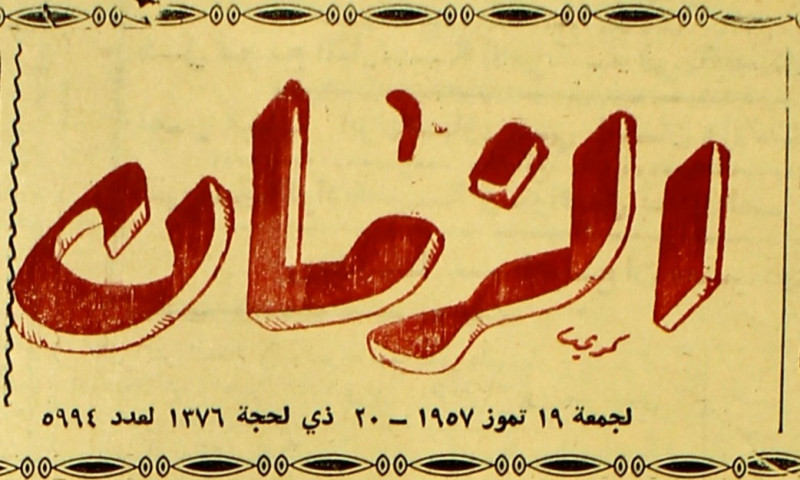 الزمان
لجمعة ١٩ تموز ١٩٥٧ – ٢٠ ذي لحجة ١٣٧٦ لعدد ٥٩٩٤